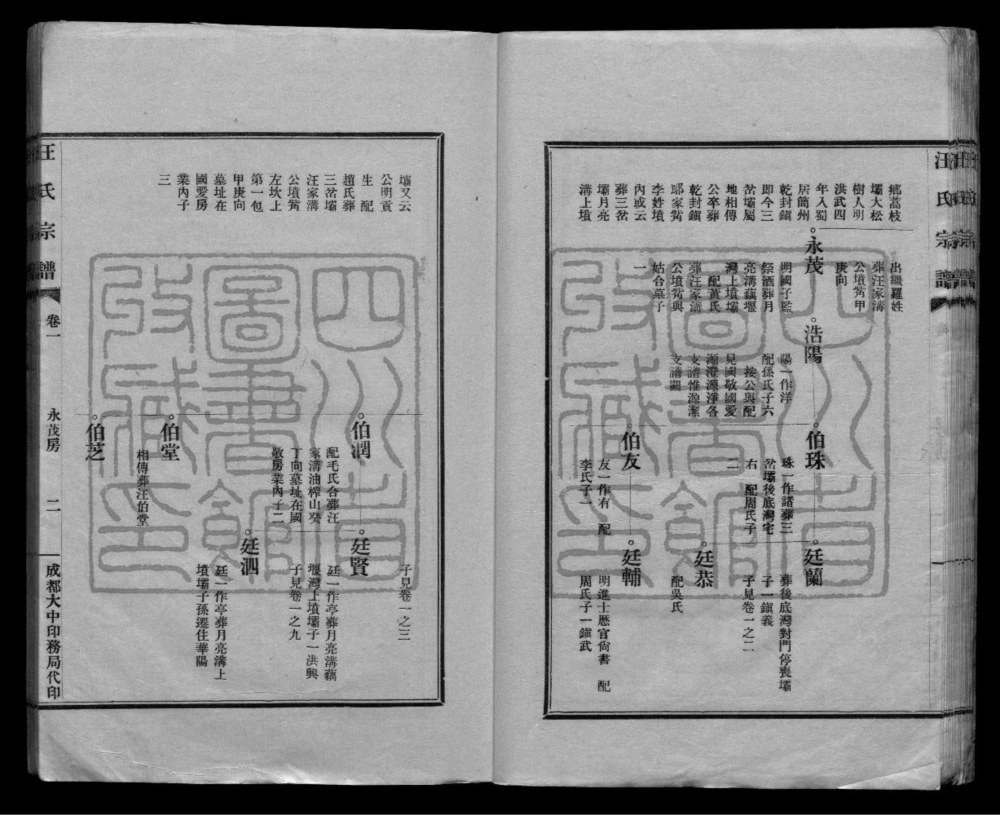 汪氏宗譜
鄉荔枝
壩大松
樹人明
洪武四
年入蜀
居簡州
乾封鎮
即今三
岔壩屬
地相傳
公卒葬
乾封鎮
鄢家觜
李姓墳
內或云
葬三岔
壩月亮
溝上墳
出繼羅姓
葬汪家溝
公墳觜甲
庚向
永茂
明國子監
祭酒葬月
亮溝藕堰
灣上墳壩
配黃氏
葬汪家溝
公墳觜與
姑合墓子
一
浩陽
陽一作洋
配孫氏子六
換公與配
見國敬國愛
源澄源淨各
支譜惟源潔
支譜闕
伯珠
珠一作諸葬三
岔壩後底灣宅
右 配周氏子
二
廷蘭
葬後底灣對門停喪壩
子一鎮義
子見卷一之二
廷恭
配吳氏
伯友
友一作有 配
李氏子一
廷輔
明進士歷官尙書 配
周氏子一鎮武
子見卷一之三
壩又云
公明貢
生 配
趙氏葬
三岔壩
汪家溝
公墳觜
左坎上
第一包
甲庚向
墓址在
國愛房
業內子
三
伯潤
配毛氏合葬汪
家溝油榨山癸
丁向墓址在國
敬房業內子二
廷賢
廷一作亭葬月亮溝藕
堰灣上墳壩子一洪興
子見卷一之九
廷泗
廷一作亭葬月亮溝上
墳壩子孫遷住華陽
伯堂
相傳葬汪伯堂
伯芝
汪氏宗譜
卷一
永茂房
二
成都大中印務局代印
四川省
圖書館
收藏印